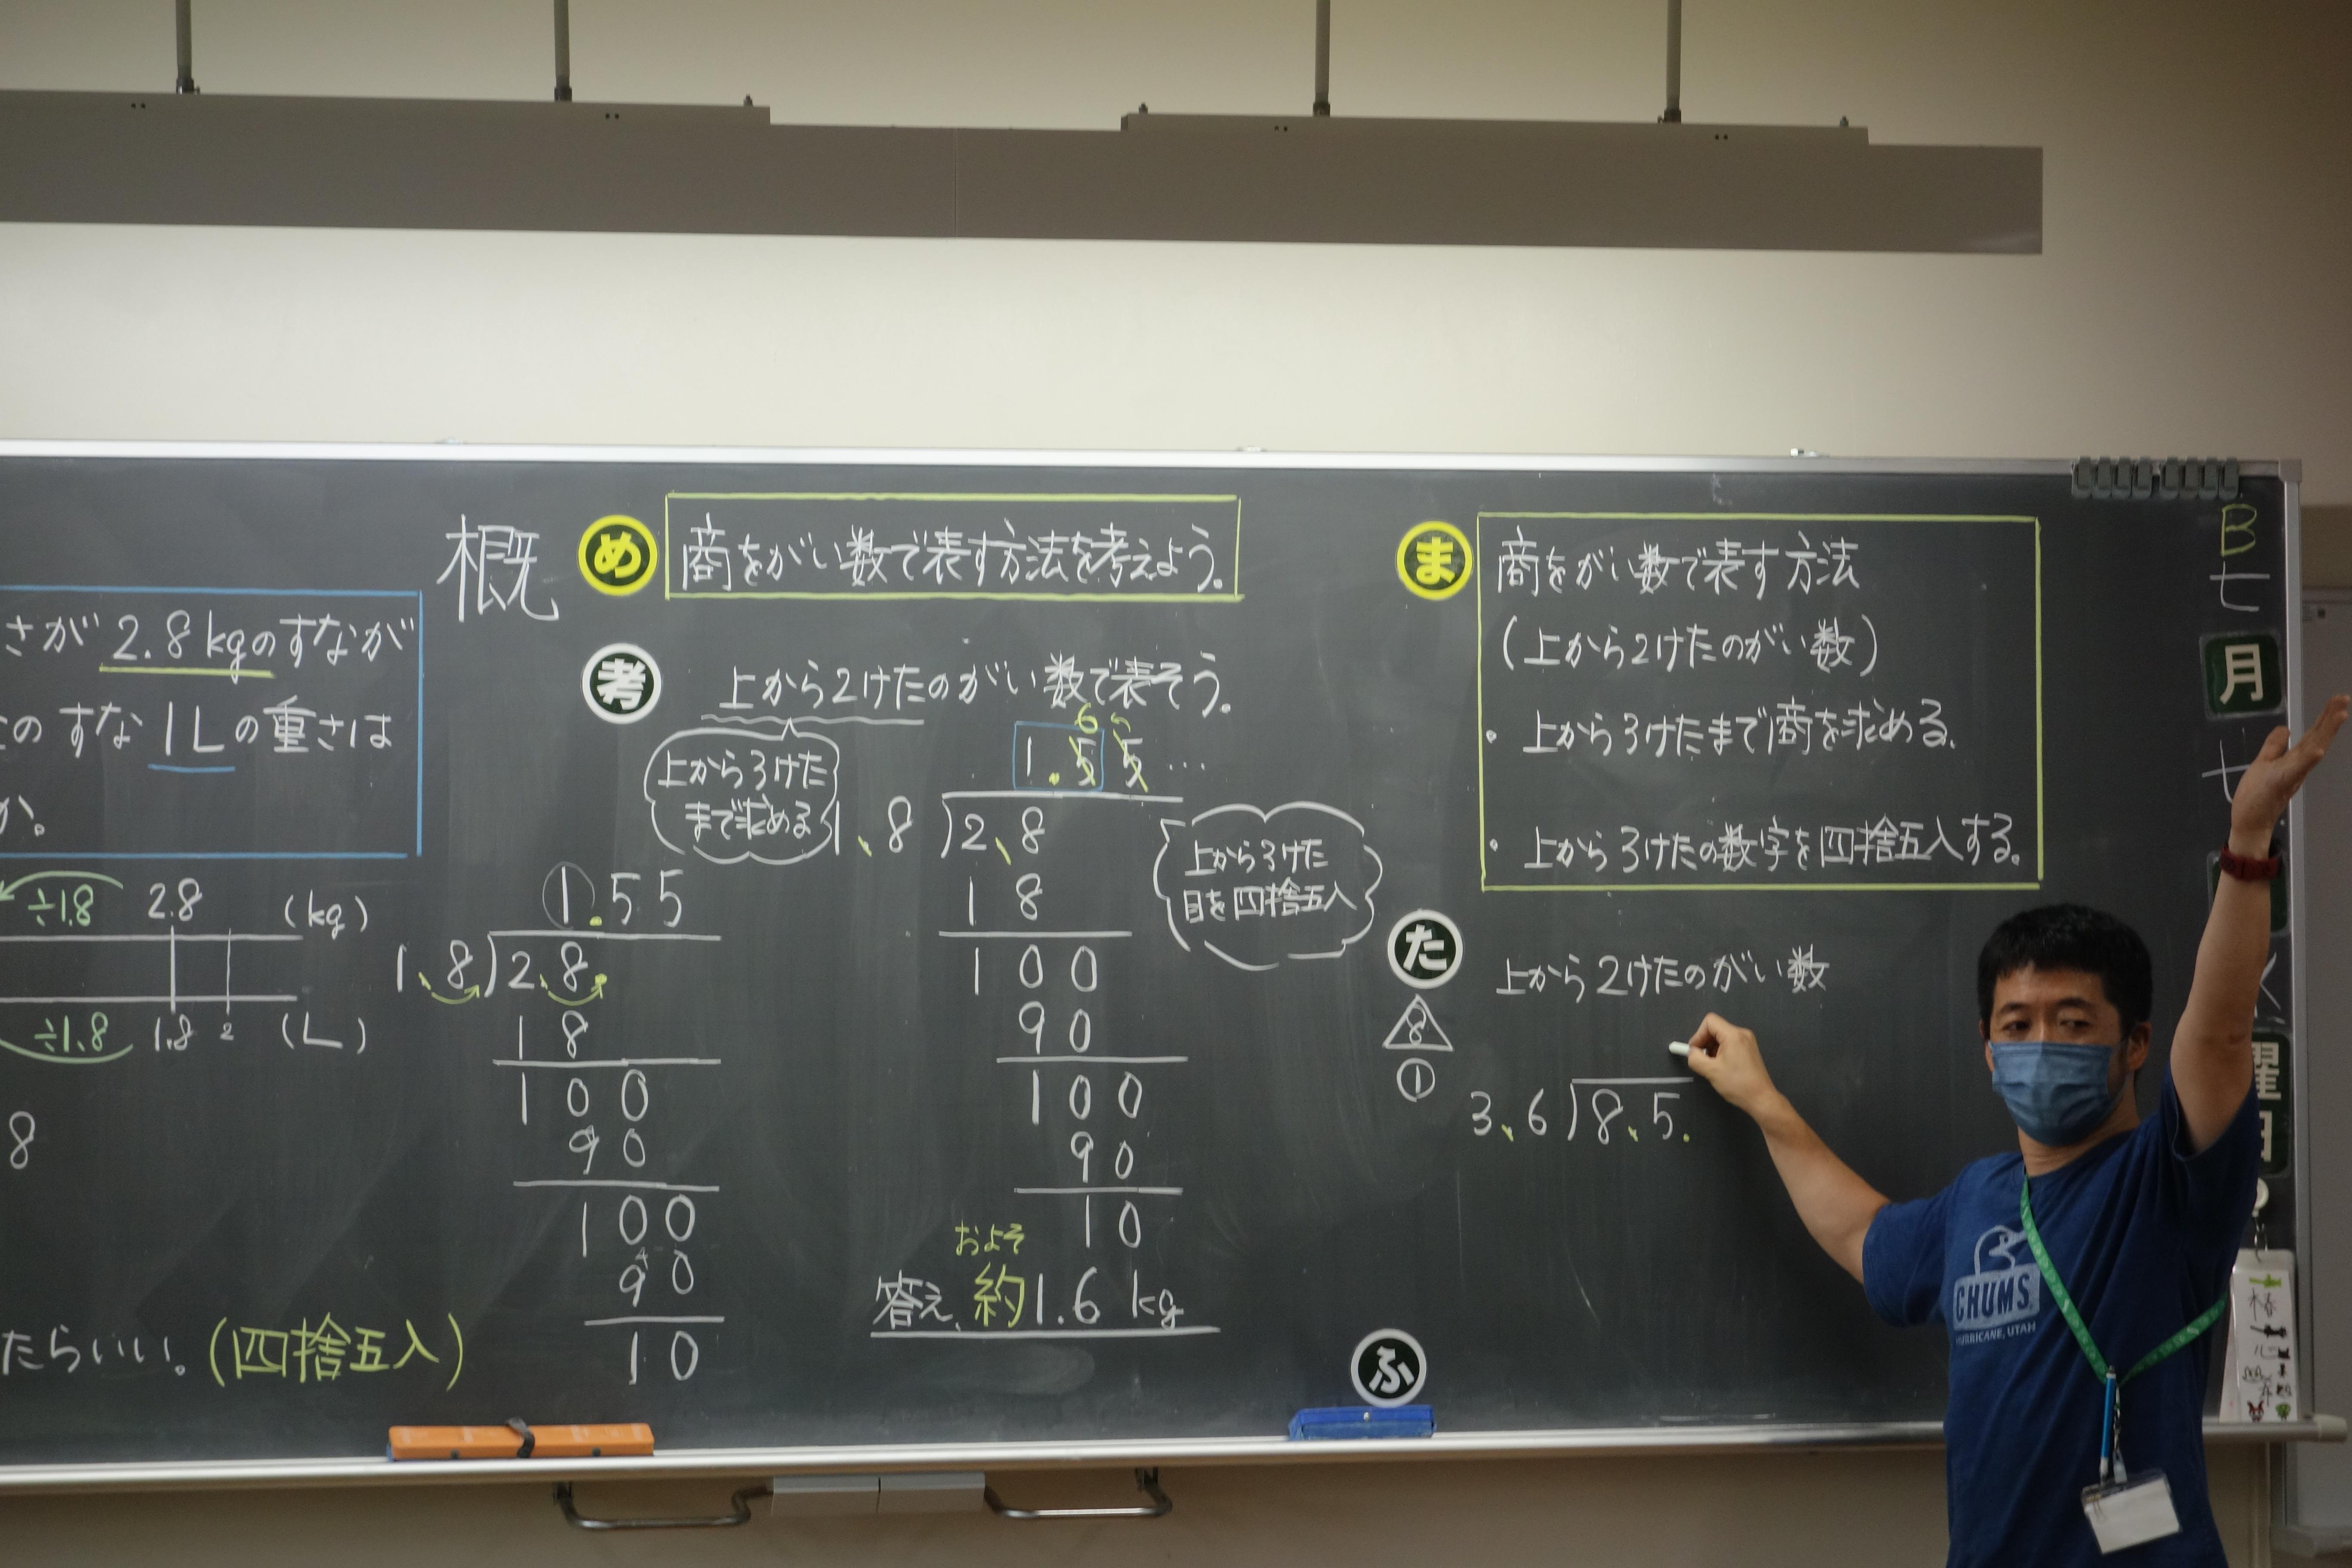 さが 2.8 kgのすなが
のすな 1Lの重さは
か。
÷1.8 2.8 (kg)
÷1.8 1.8 2 (L)
8
たらいい。(四捨五入)
概
め
商をがい数で表す方法を考えよう。
考
上から2けたのがい数で表そう。
上から3けた
まで求める
1.55
1.8)2.8.
18
100
90
100
90
10
6
1.55...
1.8)2.8
18
100
90
100
90
10
上から3けた
目を四捨五入
およそ
答え、約1.6 kg
ま
商をがい数で表す方法
(上から2けたのがい数)
・上から3けたまで商を求める。
・上から3けたの数字を四捨五入する。
た
上から2けたのがい数
8
①
3.6)8.5.
ふ
月
曜
日
CHUMS
HURRICANE, UTAH